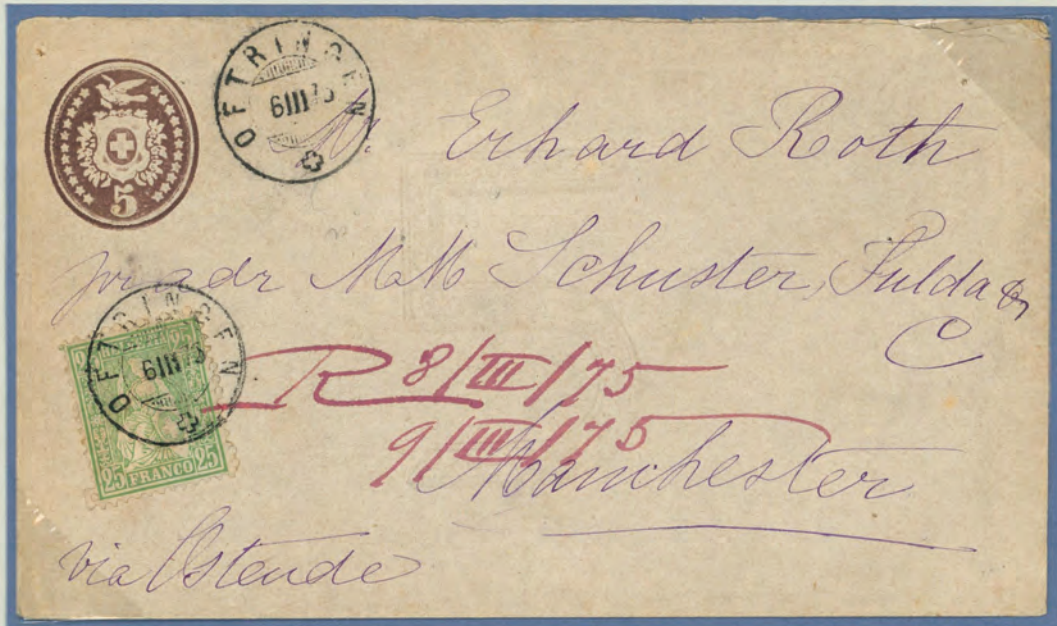 5
OFTRINGEN
6 III 75
Mr. Erhard Roth
pr adr MM Schuster, Fulda &
C
OFTRINGEN
6 III 75
R 8/III/75
9/III/75
25 FRANCO 25
Manchester
via Ostende